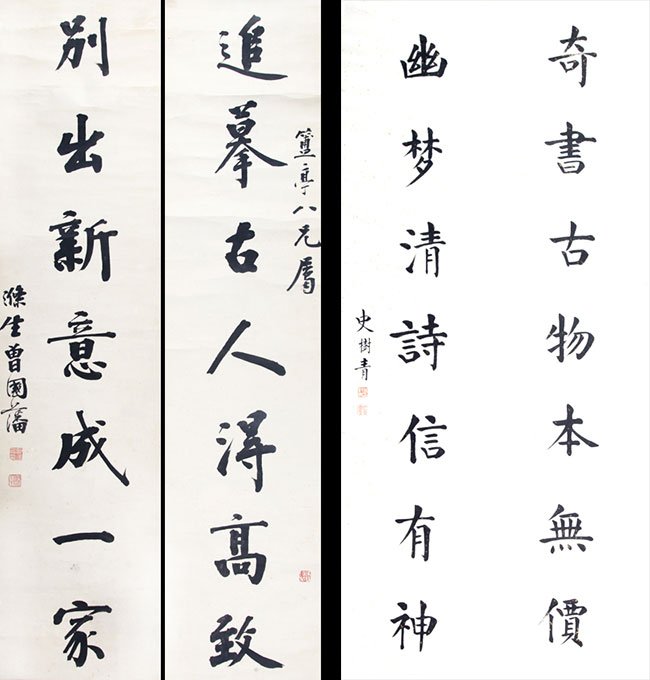 奇書古物本無價
幽梦清詩信有神
史樹青
亭八兄屬
追摹古人得高致
別出新意成一家
滌生曾國藩